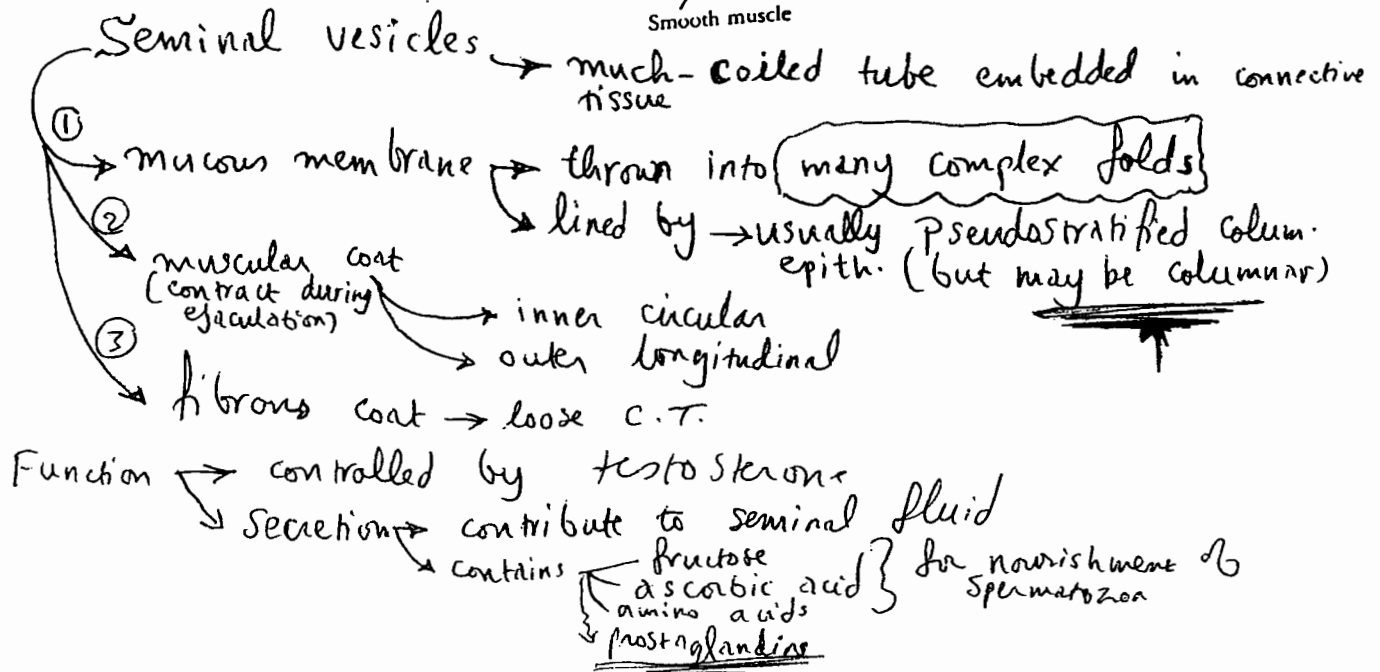 Smooth muscle
Seminal vesicles → much-coiled tube embedded in connective
tissue
① mucous membrane → thrown into many complex folds
lined by → usually pseudostratified colum.
epith. (but may be columnar)
② muscular coat
(contract during
ejaculation)
inner circular
outer longitudinal
③ fibrous coat → loose C.T.
Function → controlled by testosterone
Secretion → contribute to seminal fluid
contains
fructose
ascorbic acid } for nourishment of
spermatozoa
amino acids
prostaglandins